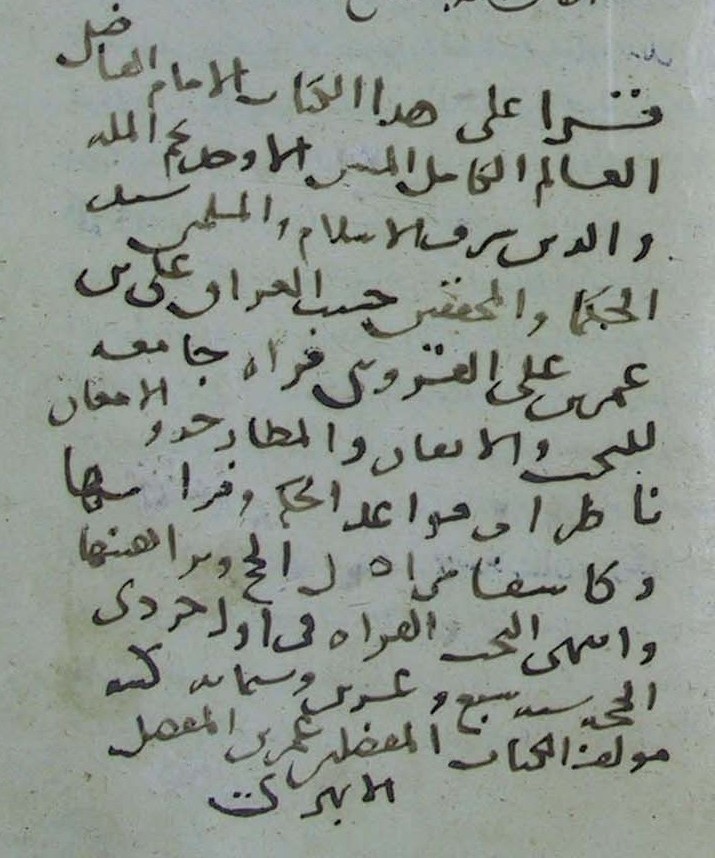 قرا على هذا الكتاب الامام الفاضل
العالم الكامل الاوحد نجم الملة
والدين شرف الاسلام والمسلمين سيد
الحكما والمحققين العراق على بن
عمر بن على القزوينى قراة جامعة
للبحث والاتقان والمطارحة و الامعان
ناظرا فى قواعد الحكم
وكاشفا عن الحجج وبراهينها
وانتهى البحث القراة فى ذى
الحجة سنة سبع وعشرين وستماية كتبه
مولف الكتاب المفضل بن عمر بن المفضل
الابهرى